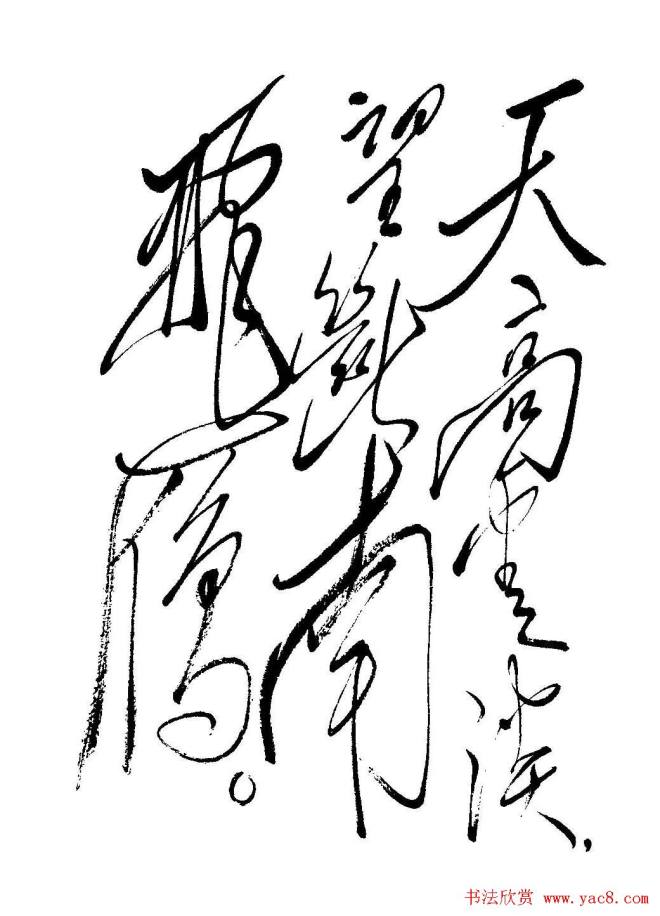 天高雲淡，
望斷南
飛雁。
书法欣赏 www.yac8.com